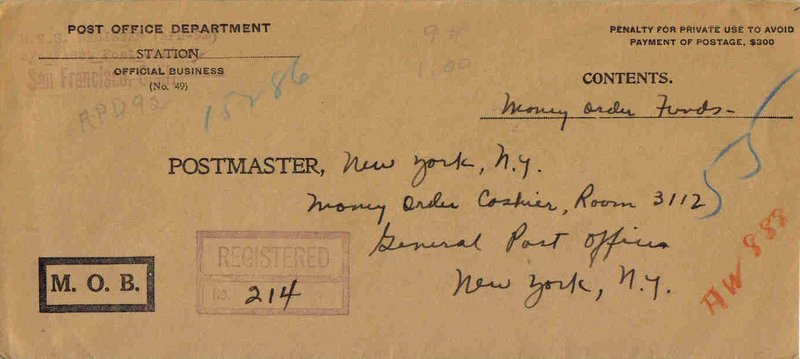 POST OFFICE DEPARTMENT
STATION
OFFICIAL BUSINESS
(No. 49)
San Francisco,
15286
9#
1.00
PENALTY FOR PRIVATE USE TO AVOID
PAYMENT OF POSTAGE, $300
CONTENTS.
Money Order Funds-
POSTMASTER, New York, N.Y.
Money Order Cashier, Room 3112
General Post Office
New York, N.Y.
M. O. B.
REGISTERED
NO. 214
AW 888